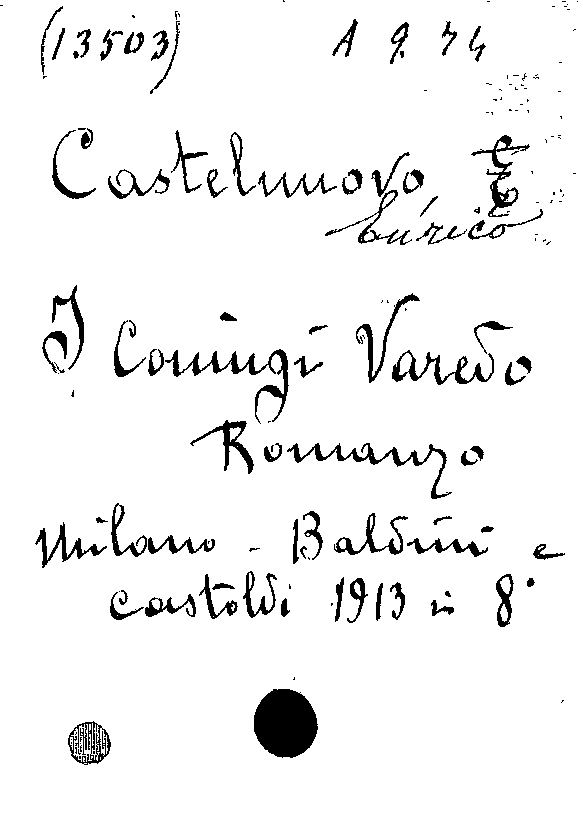 (13503) A 9. 74
Castelnuovo,
Enrico
I Coniugi Varedo
Romanzo
Milano - Baldini e
Castoldi 1913 in 8°